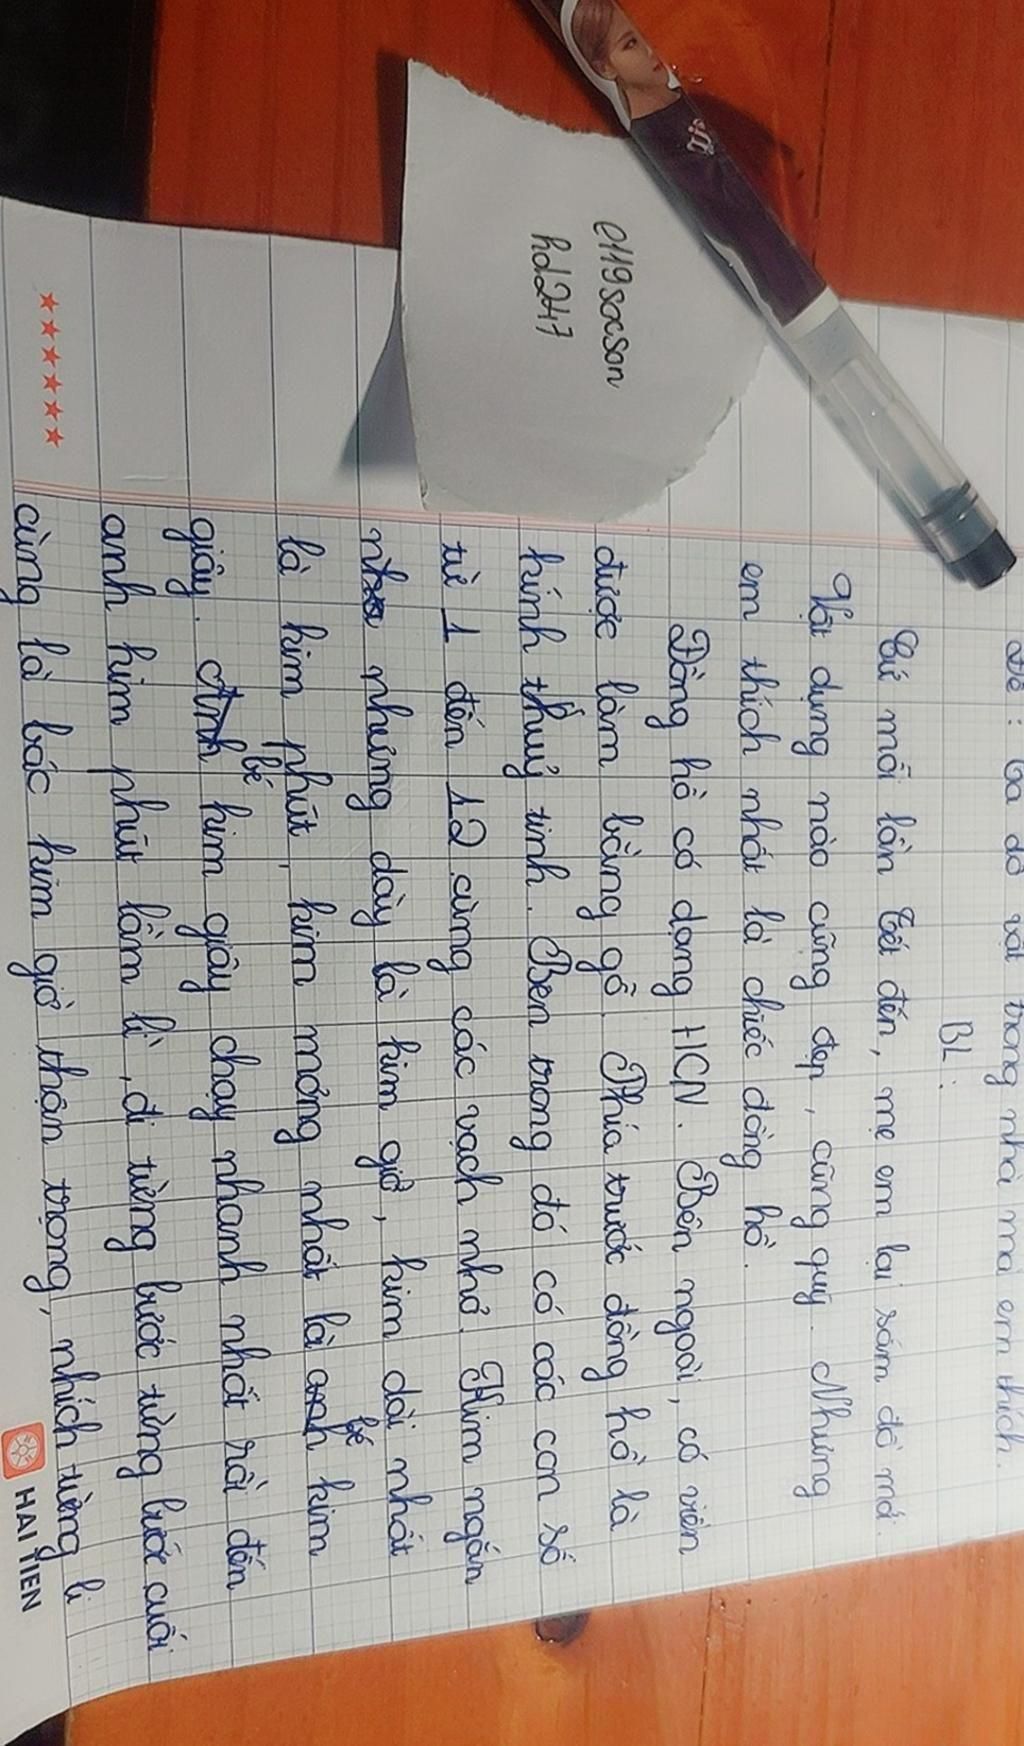 Đề: Tả đồ vật trong nhà mà em thích.
BL:
Cứ mỗi lần Tết đến, mẹ em lại sắm đồ mới.
Vật dụng nào cũng đẹp, cũng quý. Nhưng
em thích nhất là chiếc đồng hồ.
Đồng hồ có dạng HCN. Bên ngoài, có viền
được làm bằng gỗ. Phía trước đồng hồ là
kính thuỷ tinh. Bên trong đó có các con số
từ 1 đến 12 cùng các vạch nhỏ. Kim ngắn
nhưng dày là kim giờ, kim dài nhất
là kim phút, kim mỏng nhất là bé kim
giây. bé kim giây chạy nhanh nhất rồi đến
anh kim phút lầm lì, đi từng bước từng bước cuối
cùng là bác kim giờ thận trọng, nhích từng li
e119socson
hd247
HẢI TIẾN